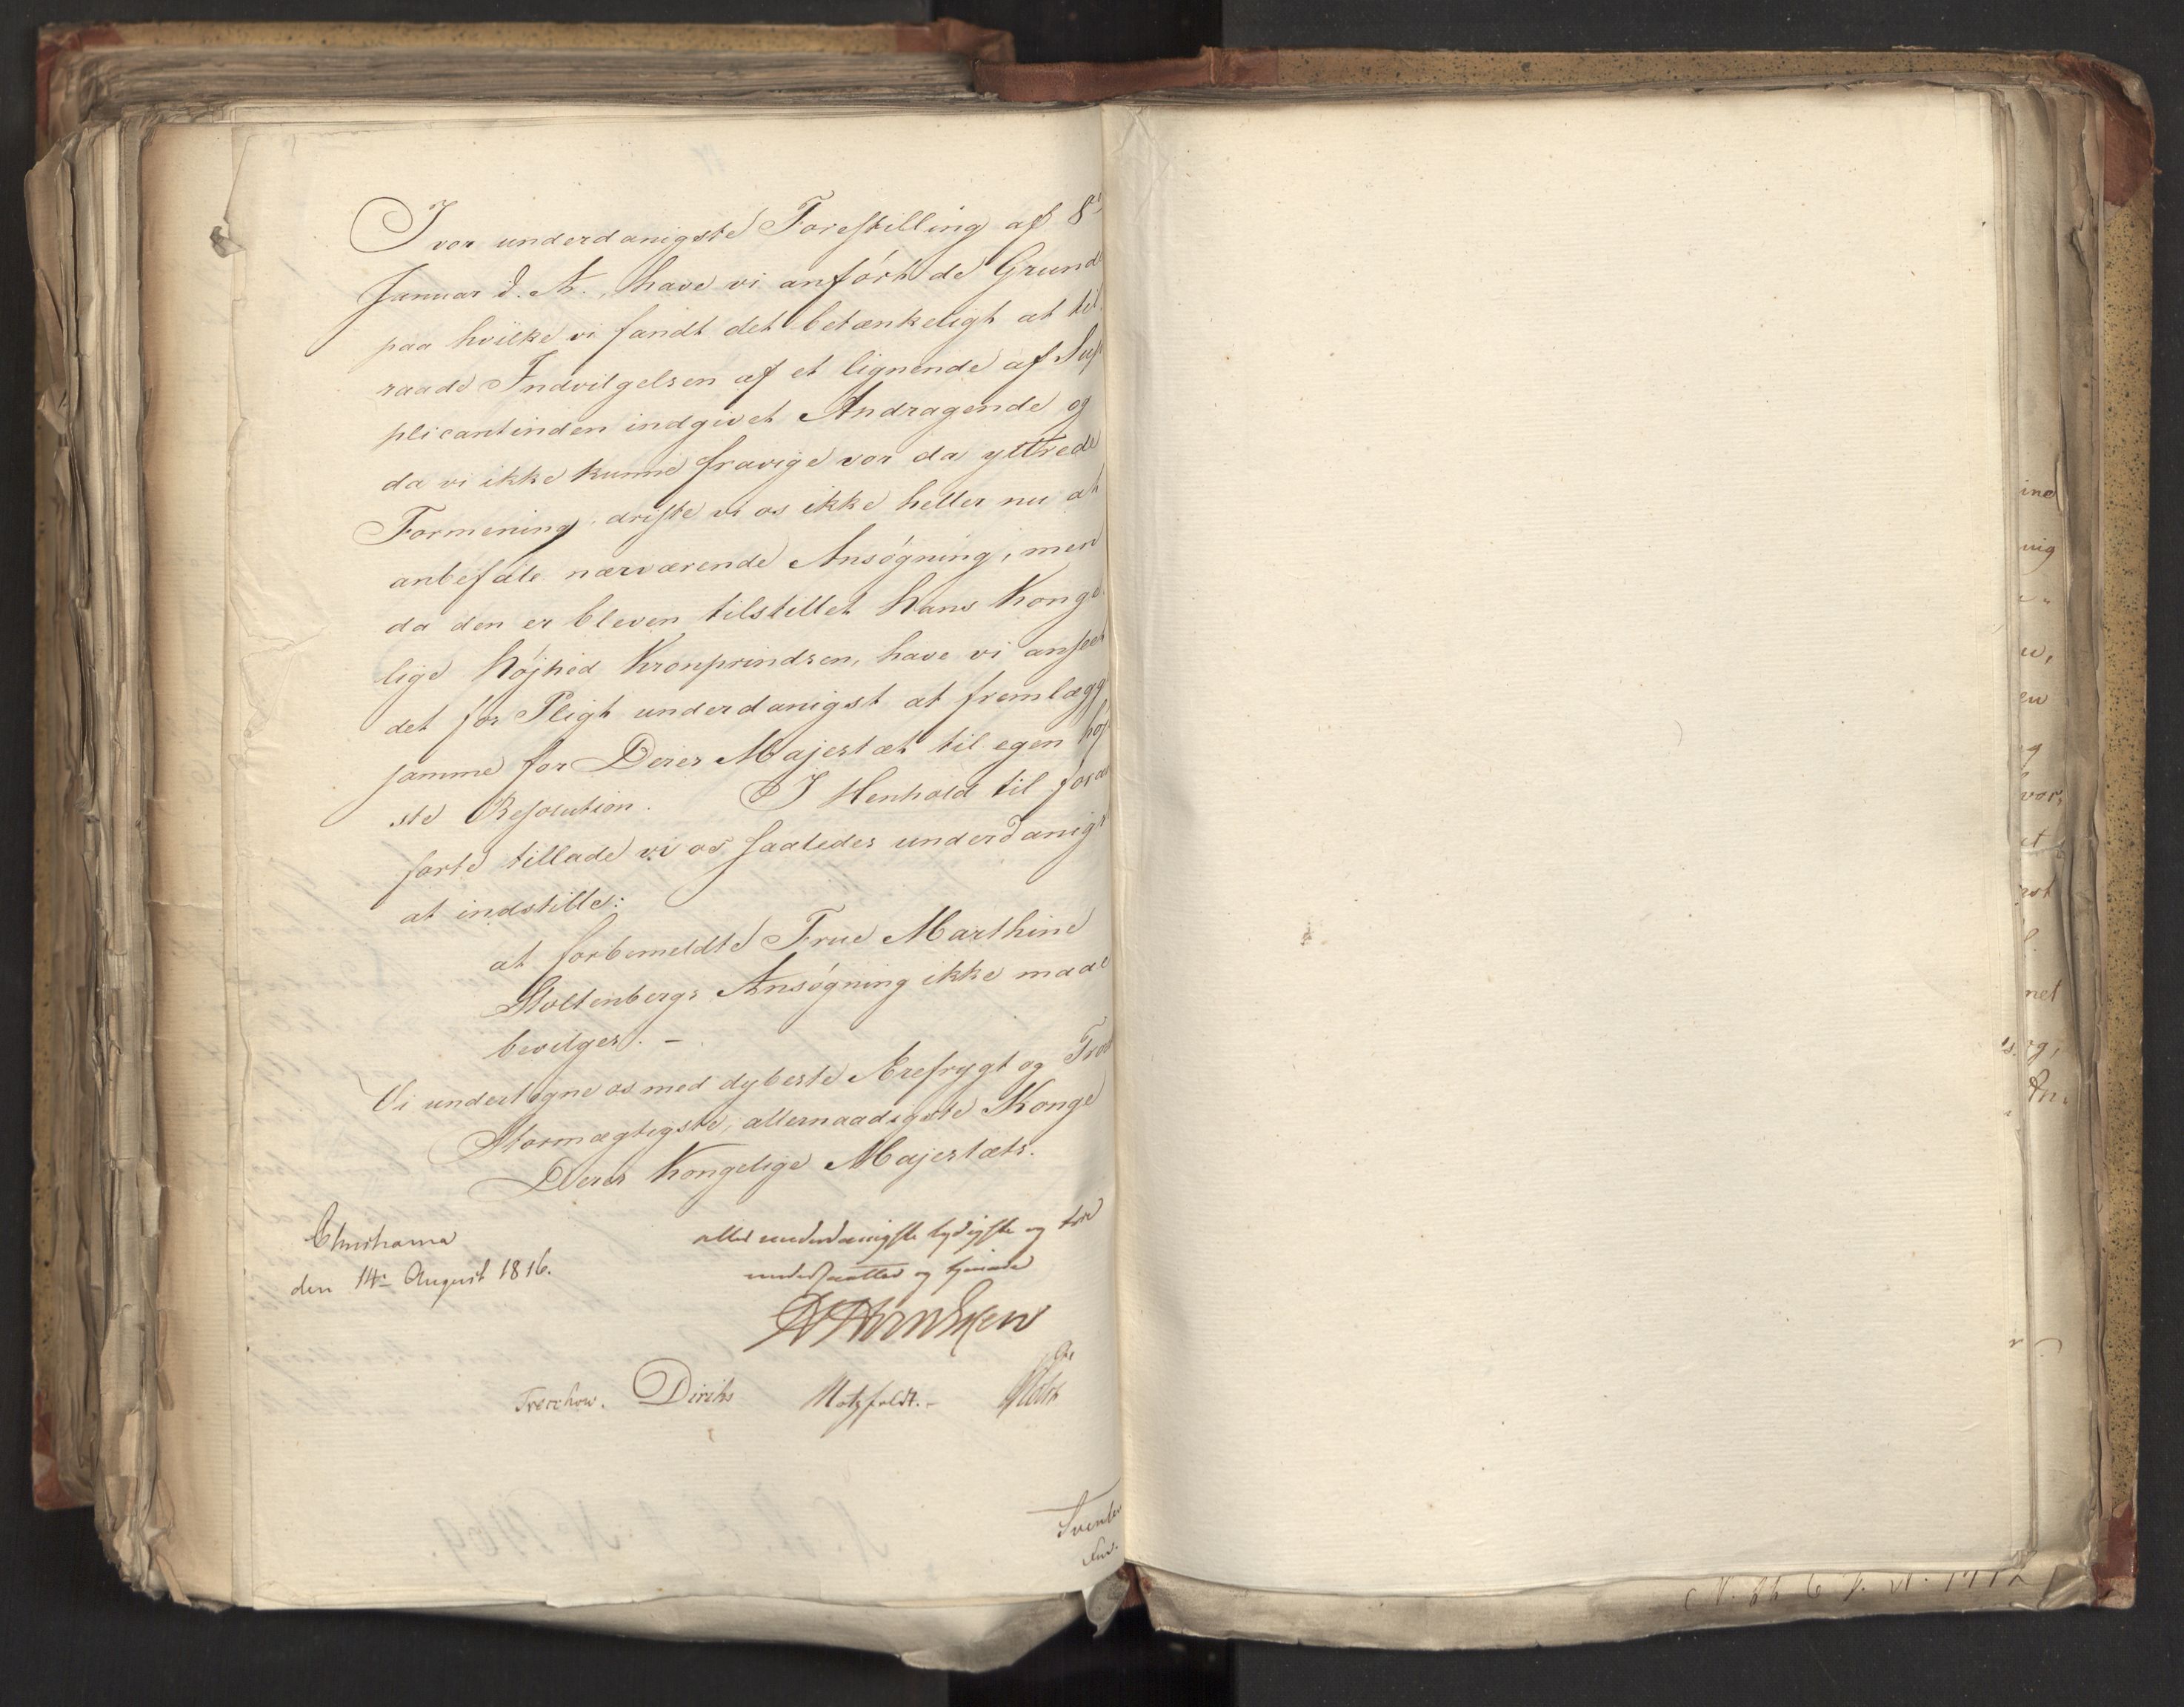 I vor underdanigste Forestilling af 8de
Januar d. A., have vi anført de Grunde
paa hvilke vi fandt det betænkeligt at til
raade Indvilgelsen af et lignende af Sup
plicantinden indgivet Andragende og
da vi ikke kunne fravige vor da yttrede
Formening, driste vi os ikke heller nu at
anbefale nærværende Ansøgning, men
da den er bleven tilstillet Hans Konge
lige Højhed Kronprindsen, have vi anseet
det for Pligt underdanigst at fremlægge
samme for Deres Majestæt til egen høj
ste Resolution. I Henhold til foran
førte tillade vi os saaledes underdanigst
at indstille:
at forbemeldte Frue Marthine
Stoltenbergs Ansøgning ikke maae
bevilges. –
Vi undertegne os med dybeste Ærefrygt og Trosk
Stormægtigste, allernaadigste Konge
Deres Kongelige Majestæts.
Christiania
den 14de August 1816.
allerunderdanigste lydigste og troe
undersaatter og tjenere
Treschow. Diriks Motzfeldt. –
N. 1769.